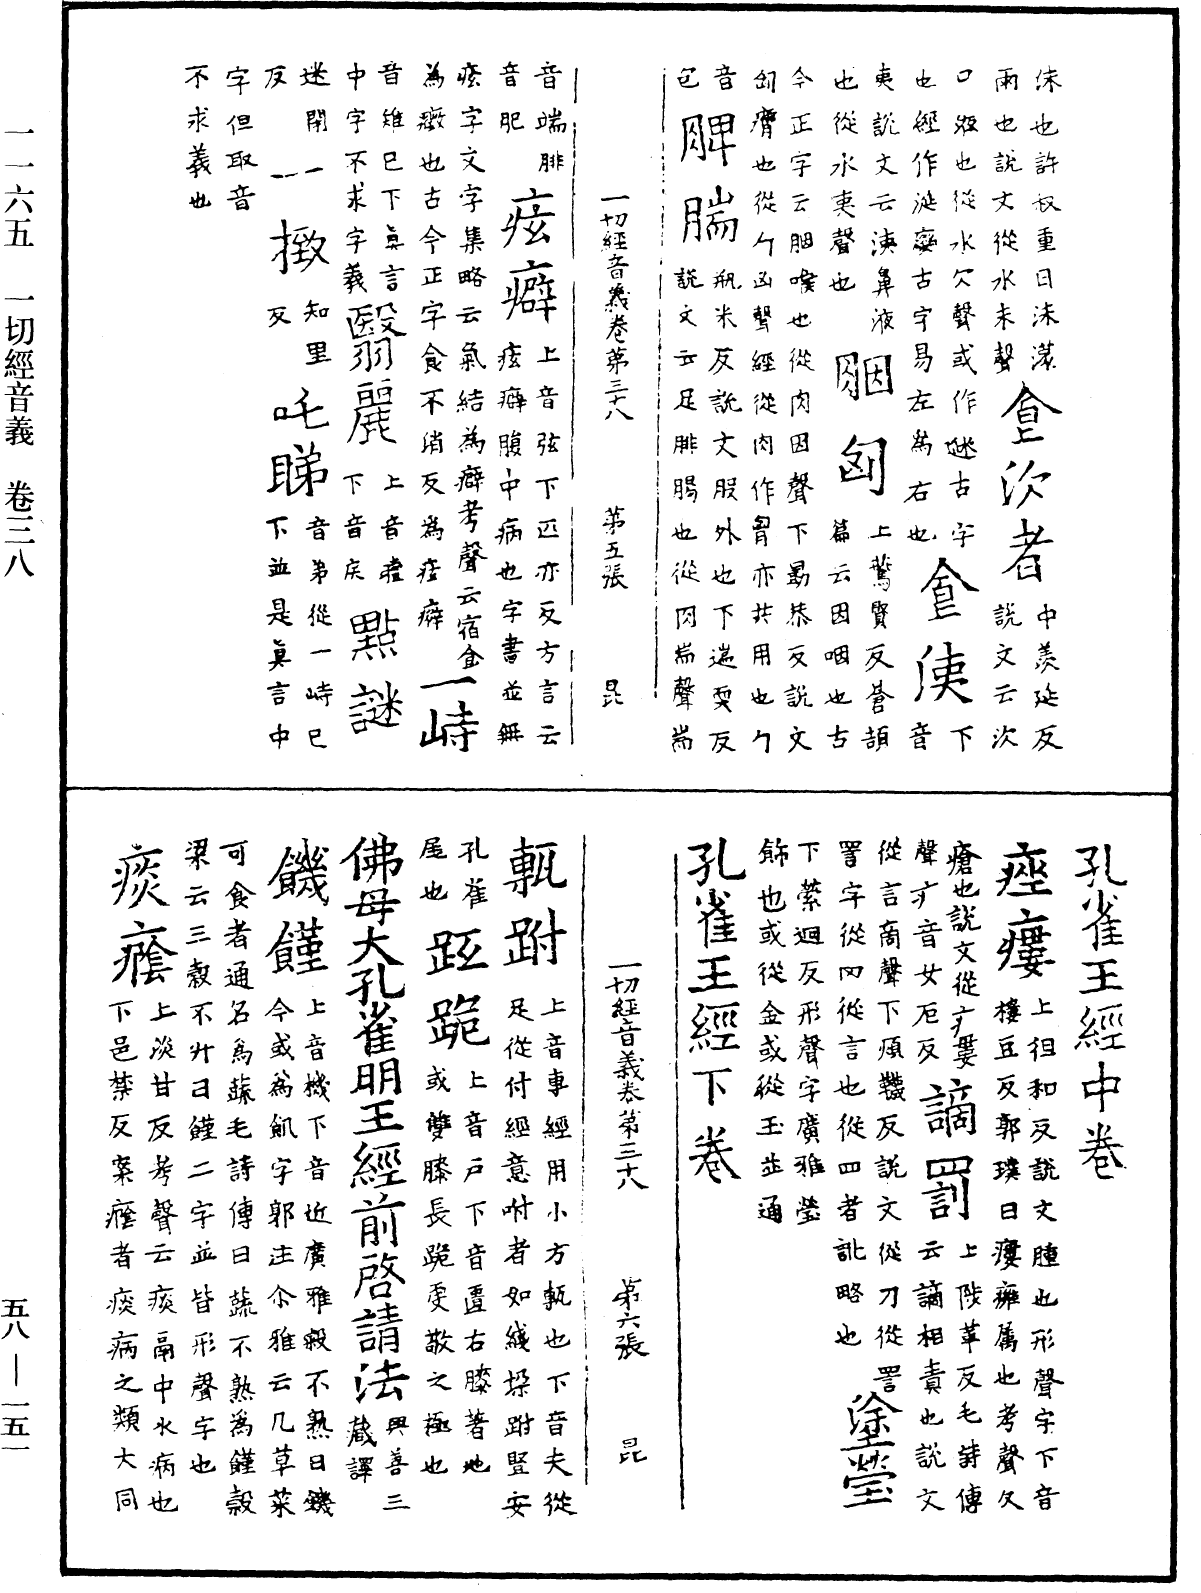 沫也許叔重曰沫潦
雨也說文從水未聲
食㳄者
中羨延反
說文云㳄
口液也從水欠聲或作㳄古字下
也經作涎變古字易左為右也
食洟
音
夷說文云洟鼻液
也從水夷聲也
胭匈
上鷰賢反蒼頡
篇云因咽也古
今正字云胭喉也從肉因聲下勗恭反說文
匈膺也從勹凶聲經從肉作胷亦共用也勹
音
包
䏶腨
瓶米反說文股外也下遄耎反
說文云足腓腸也從肉耑聲耑
一切經音義卷第三十八　第五張　昆
音端腓
音肥
痃癖
上音弦下匹亦反方言云
痃癖腹中病也字書並無
痃字文字集略云氣結為癖考聲云宿食
為癥也古今正字食不消反為痃癖
一峙
音雉巳下真言
中字不求字義
翳麗
上音
下音戾
點謎
迷閇
反
一
一
撽
知里
反
吒睇
音弟從一峙巳
下並是真言中
字但取音
不求義也
孔雀王經中卷
痤瘻
上徂和反說文腫也形聲字下音
樓豆反郭璞曰瘻癰属也考聲久
瘡也說文從疒婁
聲疒音女厄反
謫罰
上陟革反毛詩傳
云謫相責也說文
從言商聲下煩韈反說文從刀從詈
詈字從罒從言也從四者訛略也
塗瑩
下縈迥反形聲字廣雅瑩
飾也或從金或從玉並通
孔雀王經下卷
一切經音義卷第三十八　第六張　昆
甎跗
上音專經用小方甎也下音夫從
足從付經意咐者如綫垛跗豎安
孔雀
尾也
跓跪
上音戸下音匱右膝著地
或雙膝長跪更敬之極也
佛母大孔雀明王經前啓請法
興善三
藏譯
饑饉
上音機下音近廣雅穀不熟曰饑
今或為飢字郭注尒雅云凡草菜
可食者通名為蔬毛詩傳曰蔬不熟為饉穀
梁云三穀不升曰饉二字並皆形聲字也
痰癊
上淡甘反考聲云痰鬲中水病也
下邑禁反案癊者痰病之類大同
一一六五　一切經音義　卷三八
五八—一五一